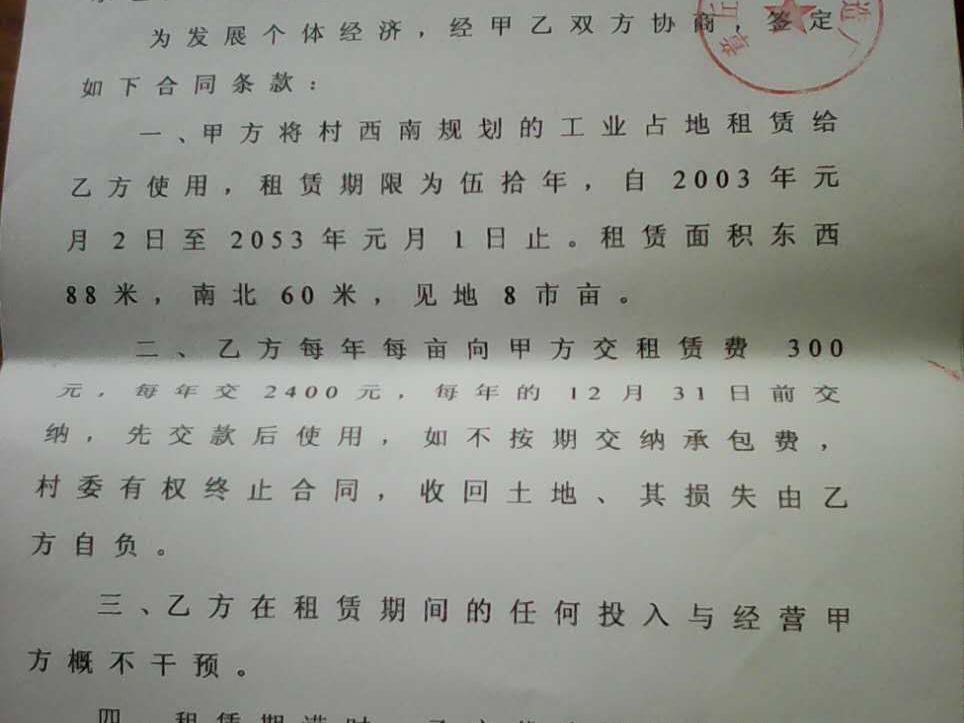 为发展个体经济，经甲乙双方协商，签定
如下合同条款：
一、甲方将村西南规划的工业占地租赁给
乙方使用，租赁期限为伍拾年，自 2003 年元
月 2 日至 2053 年元月 1 日止。租赁面积东西
88 米，南北 60 米，见地 8 市亩。
二、乙方每年每亩向甲方交租赁费 300
元，每年交 2400 元，每年的 12 月 31 日前交
纳，先交款后使用，如不按期交纳承包费，
村委有权终止合同，收回土地、其损失由乙
方自负。
三、乙方在租赁期间的任何投入与经营甲
方概不干预。
四、租赁期满时
章丘
造厂